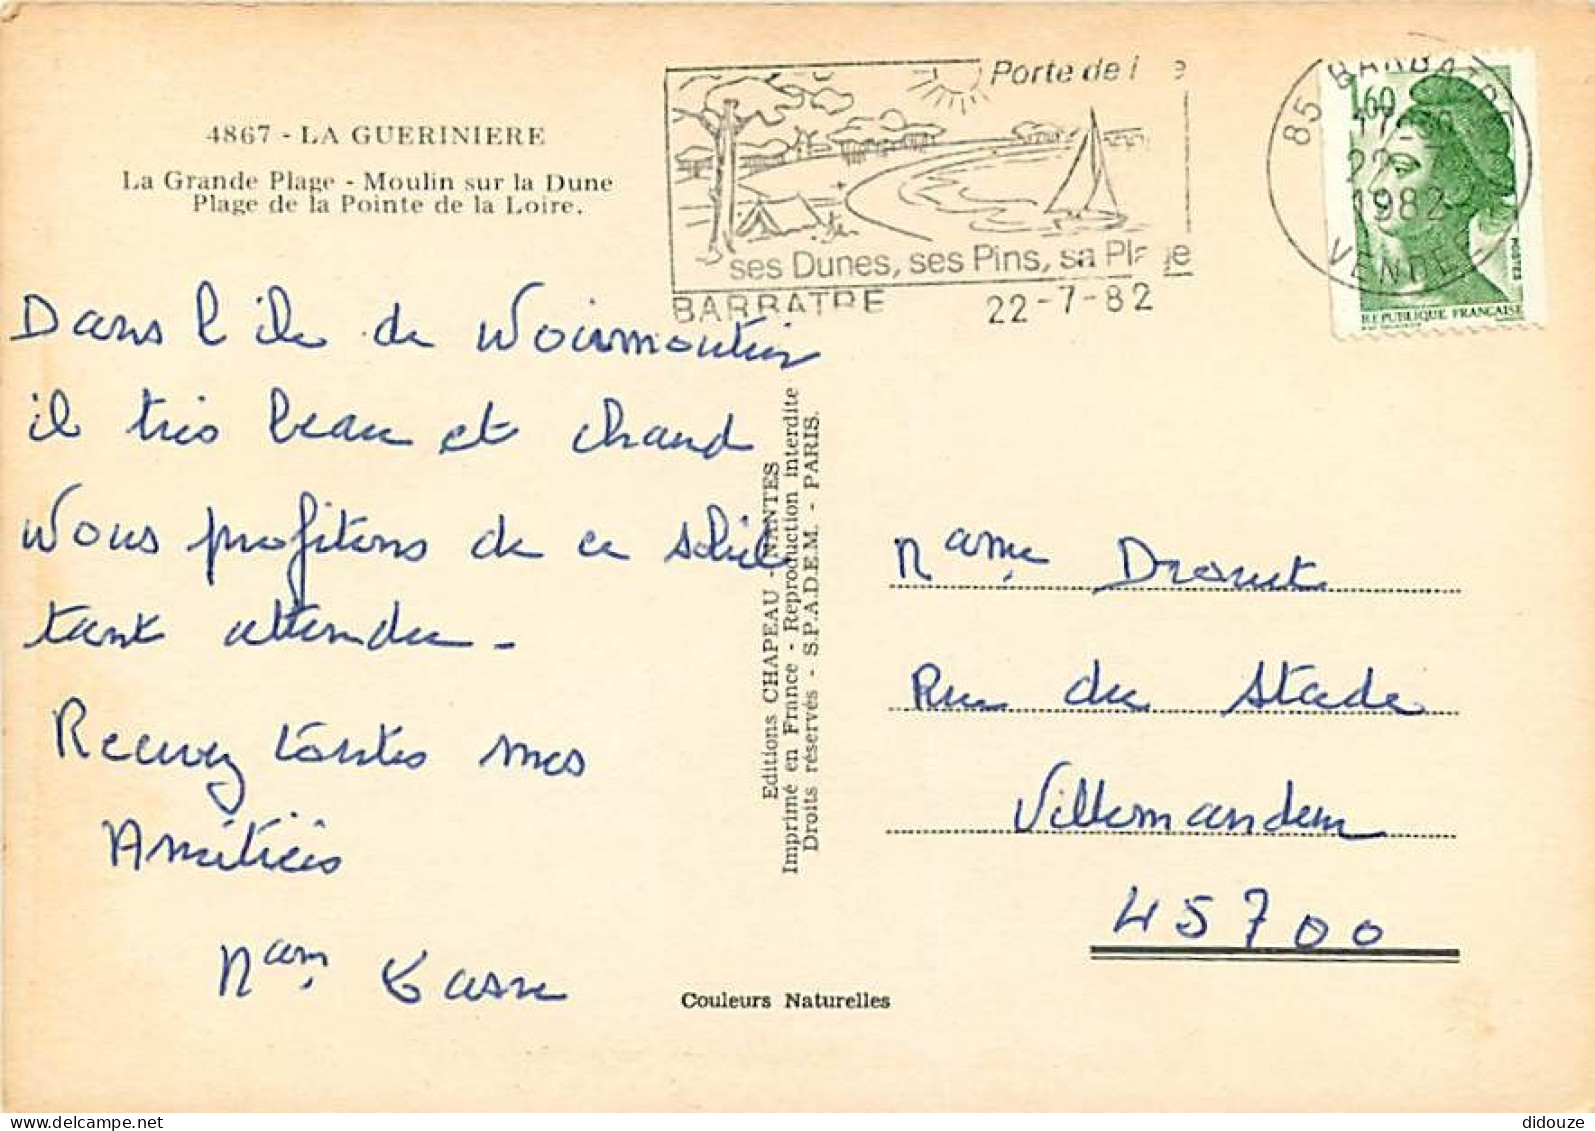 4867 - LA GUERINIERE
La Grande Plage - Moulin sur la Dune
Plage de la Pointe de la Loire.
Porte de l' e
ses Dunes, ses Pins, sa Plage
BARBATRE 22-7-82
85 BARBATRE
22-7
1982
VENDEE
1,60
POSTES
REPUBLIQUE FRANÇAISE
Dans l'ile de Noirmoutier
il très beau et chaud
Nous profitons de ce soleil
tant attendu -
Recevez toutes mes
Amitiés
Mam
Editions CHAPEAU - NANTES
Imprimé en France - Reproduction interdite
Droits réservés - S.P.A.D.E.M. - PARIS.
Mame Drouet
Rue du Stade
Villemandeur
45700
Couleurs Naturelles
Delcampe.net
didouze